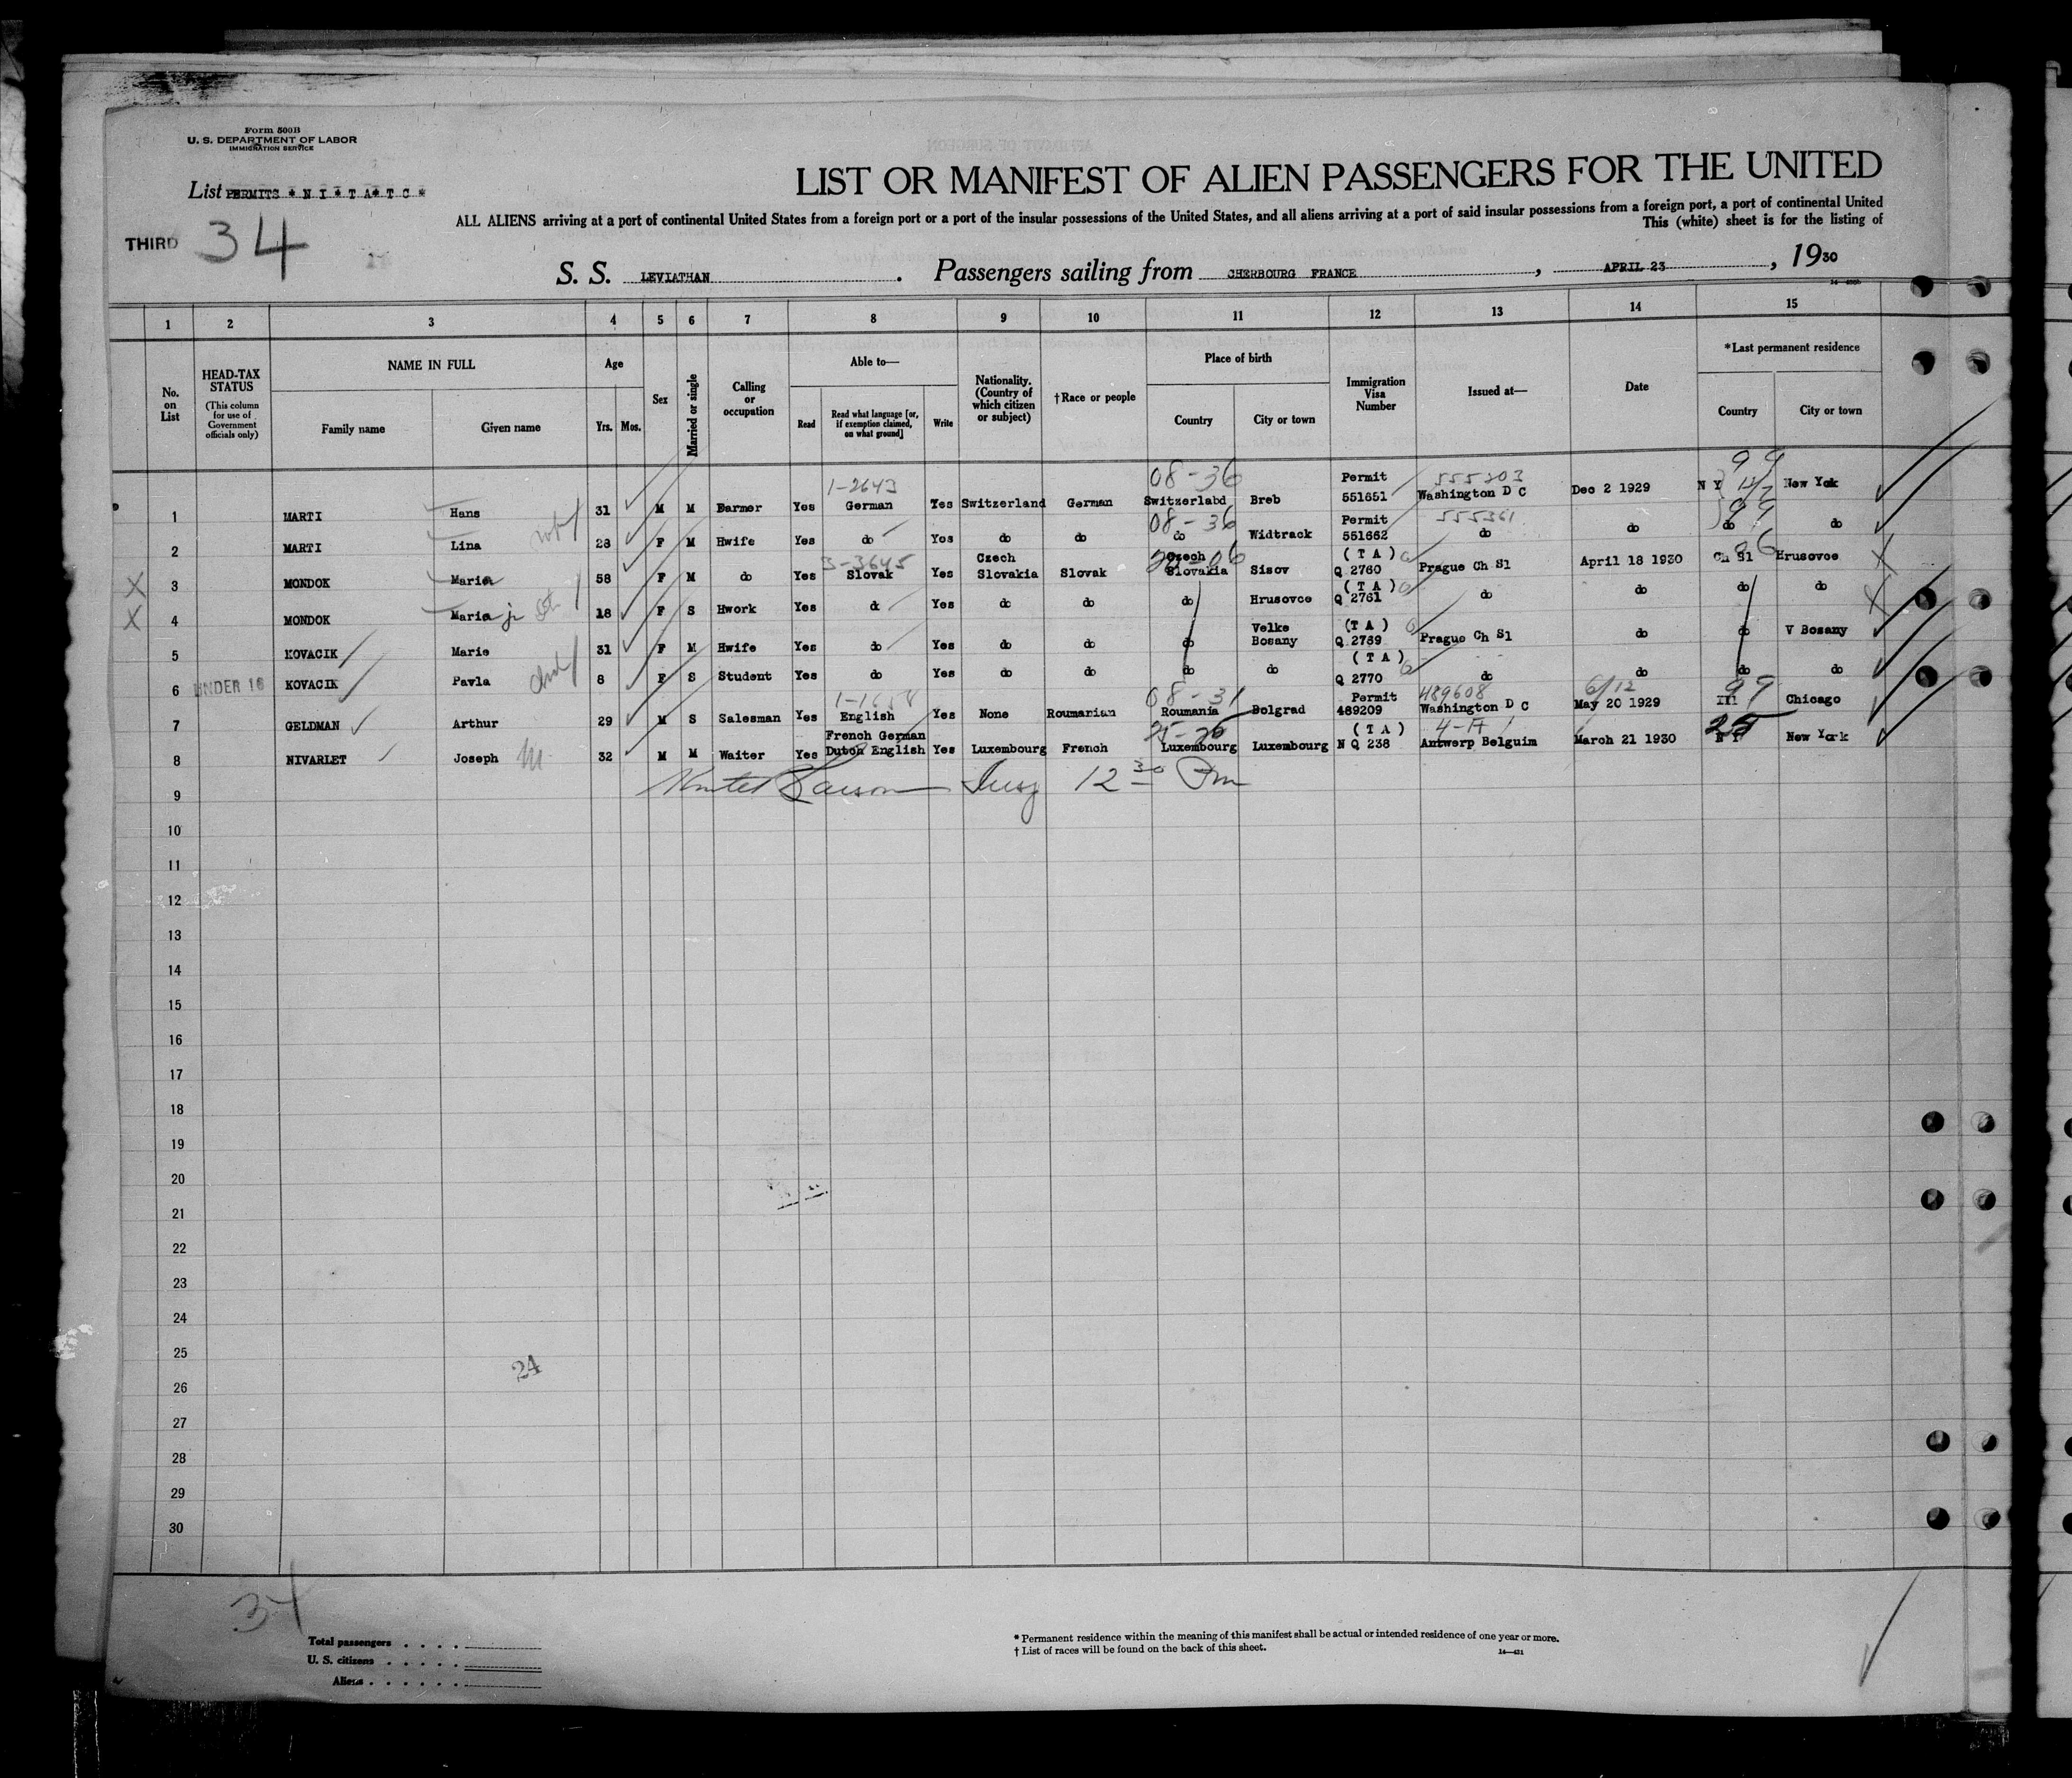 Form 500B
U. S. DEPARTMENT OF LABOR
IMMIGRATION SERVICE
List PERMITS * N I * T A * T C *
THIRD 34
LIST OR MANIFEST OF ALIEN PASSENGERS FOR THE UNITED
ALL ALIENS arriving at a port of continental United States from a foreign port or a port of the insular possessions of the United States, and all aliens arriving at a port of said insular possessions from a foreign port, a port of continental United
This (white) sheet is for the listing of
S. S. LEVIATHAN . Passengers sailing from CHERBOURG FRANCE , APRIL 23 , 1930
1 2 3 4 5 6 7 8 9 10 11 12 13 14 15
No. on List
HEAD-TAX STATUS (This column for use of Government officials only)
NAME IN FULL
Family name Given name
Age
Yrs. Mos.
Sex
Married or single
Calling or occupation
Able to—
Read Read what language [or, if exemption claimed, on what ground] Write
Nationality. (Country of which citizen or subject)
†Race or people
Place of birth
Country City or town
Immigration Visa Number
Issued at—
Date
*Last permanent residence
Country City or town
1-2643 08-36 Permit 555203 99
1 MARTI Hans 31 M M Farmer Yes German Yes Switzerland German Switzerlabd Breb 551651 Washington D C Dec 2 1929 N Y New Yok
08-36 Permit 555361 99
2 MARTI Lina 28 F M Hwife Yes do Yes do do do Widtrack 551662 do do do do
3-3645 Czech Czech 06 (TA)
3 MONDOK Maria 58 F M do Yes Slovak Yes Slovakia Slovak Slovakia Sisov Q 2760 Prague Ch Sl April 18 1930 Ch Sl Hrusovce
(TA)
4 MONDOK Maria jr 18 F S Hwork Yes d Yes do do do Hrusovce Q 2761 do do do do
Velke (TA)
5 KOVACIK Marie 31 F M Hwife Yes do Yes do do do Bosany Q 2769 Prague Ch Sl do do V Bosany
(TA)
6 UNDER 16 KOVACIK Pavla 8 F S Student Yes do Yes do do do do Q 2770 do do do do
08-31 Permit 489608 6/12 99
7 GELDMAN Arthur 29 M S Salesman Yes English Yes None Roumanian Roumania Bolgrad 489209 Washington D C May 20 1929 Ill Chicago
French German (TA) 25
8 NIVARLET Joseph 32 M M Waiter Yes Dutch English Yes Luxembourg French Luxembourg Luxembourg N Q 238 Antwerp Belguim March 21 1930 N Y New York
9 12 30 Pm
10
11
12
13
14
15
16
17
18
19
20
21
22
23
24
25
24
26
27
28
29
30
34
Total passengers
U. S. citizens
Aliens
* Permanent residence within the meaning of this manifest shall be actual or intended residence of one year or more.
† List of races will be found on the back of this sheet.
14—431